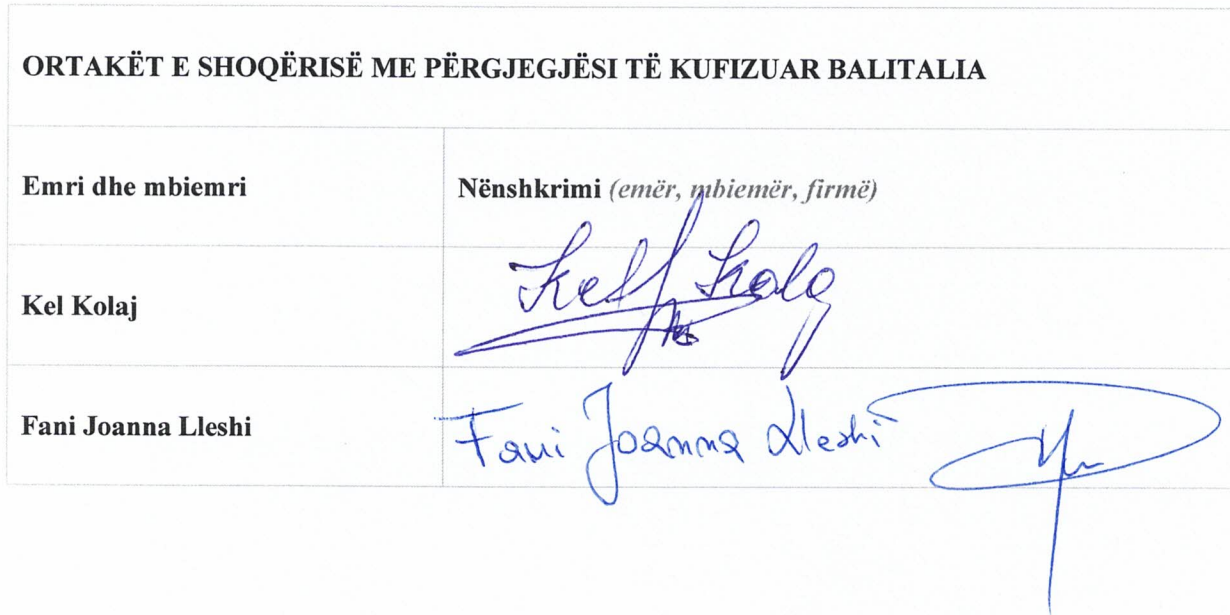 ORTAKËT E SHOQËRISË ME PËRGJEGJËSI TË KUFIZUAR BALITALIA
Emri dhe mbiemri Nënshkrimi (emër, mbiemër, firmë)
Kel Kolaj Kel Kolaj
Fani Joanna Lleshi Fani Joanna Lleshi